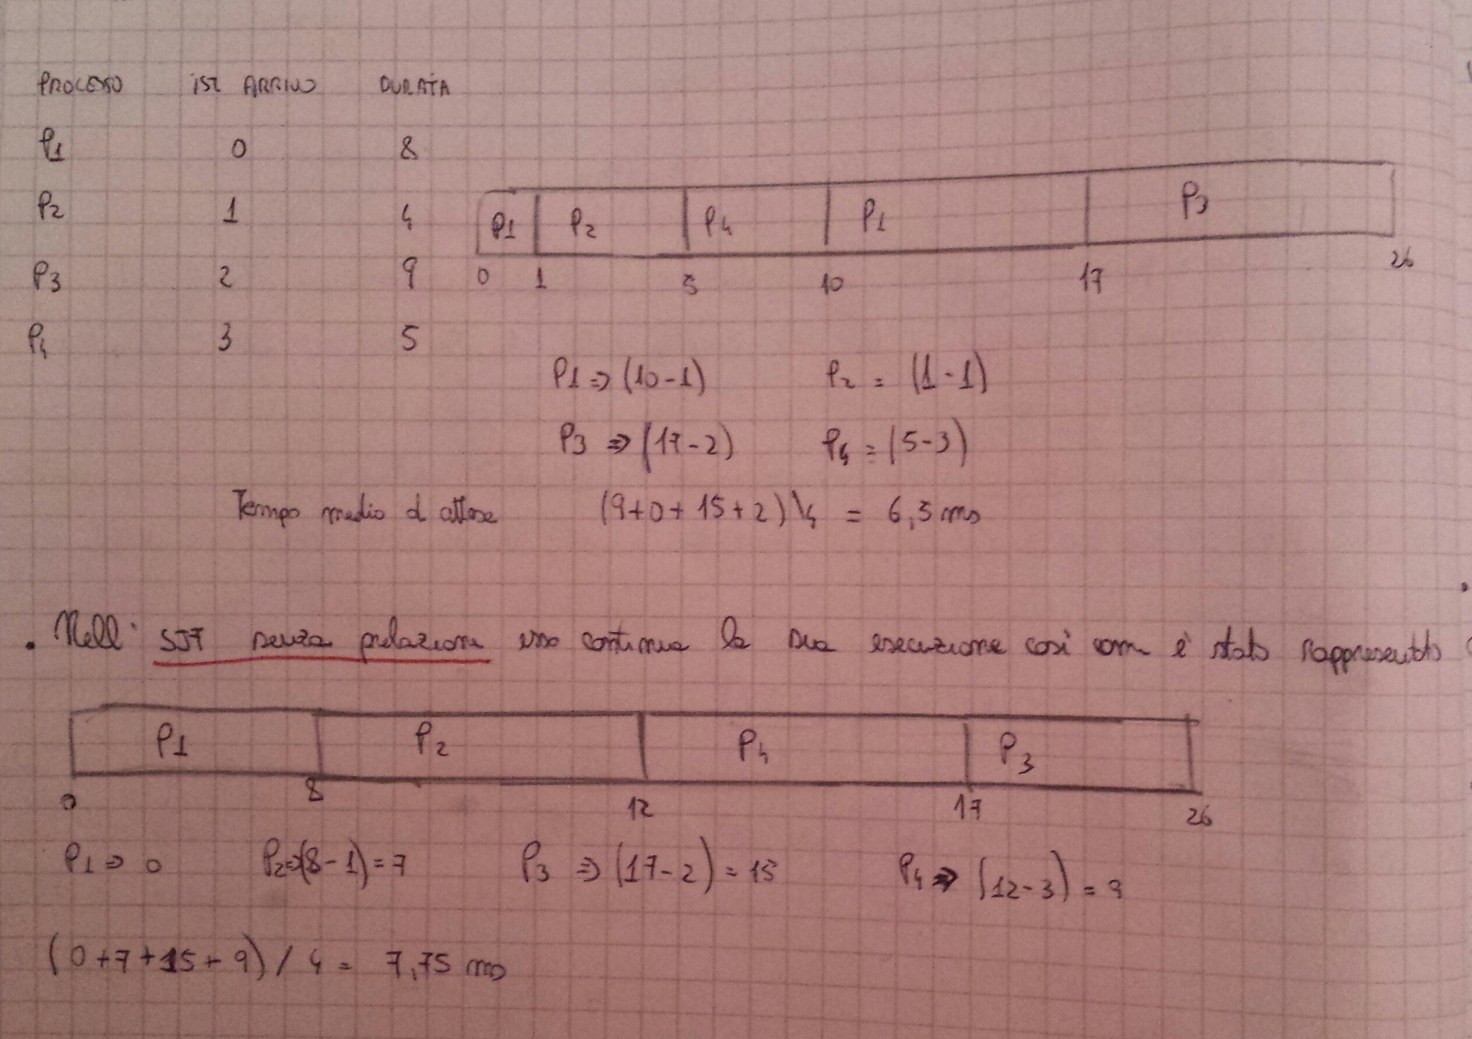 PROCESSO IST ARRIVO DURATA
P1 0 8
P2 1 4
P3 2 9
P4 3 5
P1 P2 P4 P1 P3
0 1 5 10 17 26
P1 => (10-1) P2 = (1-1)
P3 => (17-2) P4 = (5-3)
Tempo medio d attese (9+0+15+2)\4 = 6,5 ms
. Nell' SJF senza prelazione esso continua la sua esecuzione così com è stato rappresentato
P1 P2 P4 P3
0 8 12 17 26
P1 => 0 P2=>(8-1)=7 P3 => (17-2)=15 P4 => (12-3)=9
(0+7+15+9)/4= 7,75 ms